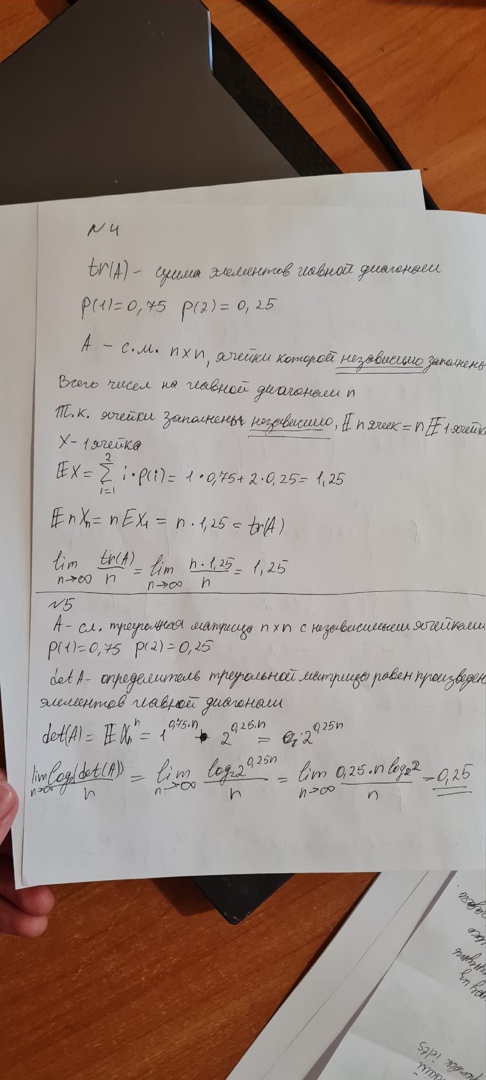 N4
tr(A) - сумма элементов главной диагонали
p(1)=0,75 p(2)=0,25
A - с.м. n×n, ячейки которой независимо заполнены
Всего чисел на главной диагонали n
Т.к. ячейки заполнены независимо, 𝔼 n ячеек = n 𝔼 1 ячейки
X - 1 ячейка
𝔼X = ∑_{i=1}^{2} i·p(i) = 1·0,75+2·0,25 = 1,25
𝔼nXₙ = nEX₁ = n·1,25 = tr(A)
lim_{n→∞} tr(A)/n = lim_{n→∞} n·1,25/n = 1,25
N5
A - сл. треугольная матрица n×n с независимыми ячейками
p(1)=0,75 p(2)=0,25
det A - определитель треугольной матрицы равен произведен
элементов главной диагонали
det(A) = 𝔼Xₙⁿ = 1^{0,75·n} · 2^{0,25·n} = 2^{0,25n}
lim_{n→∞} log₂(det(A))/n = lim_{n→∞} log₂2^{0,25n}/n = lim_{n→∞} 0,25·n log₂2/n = 0,25